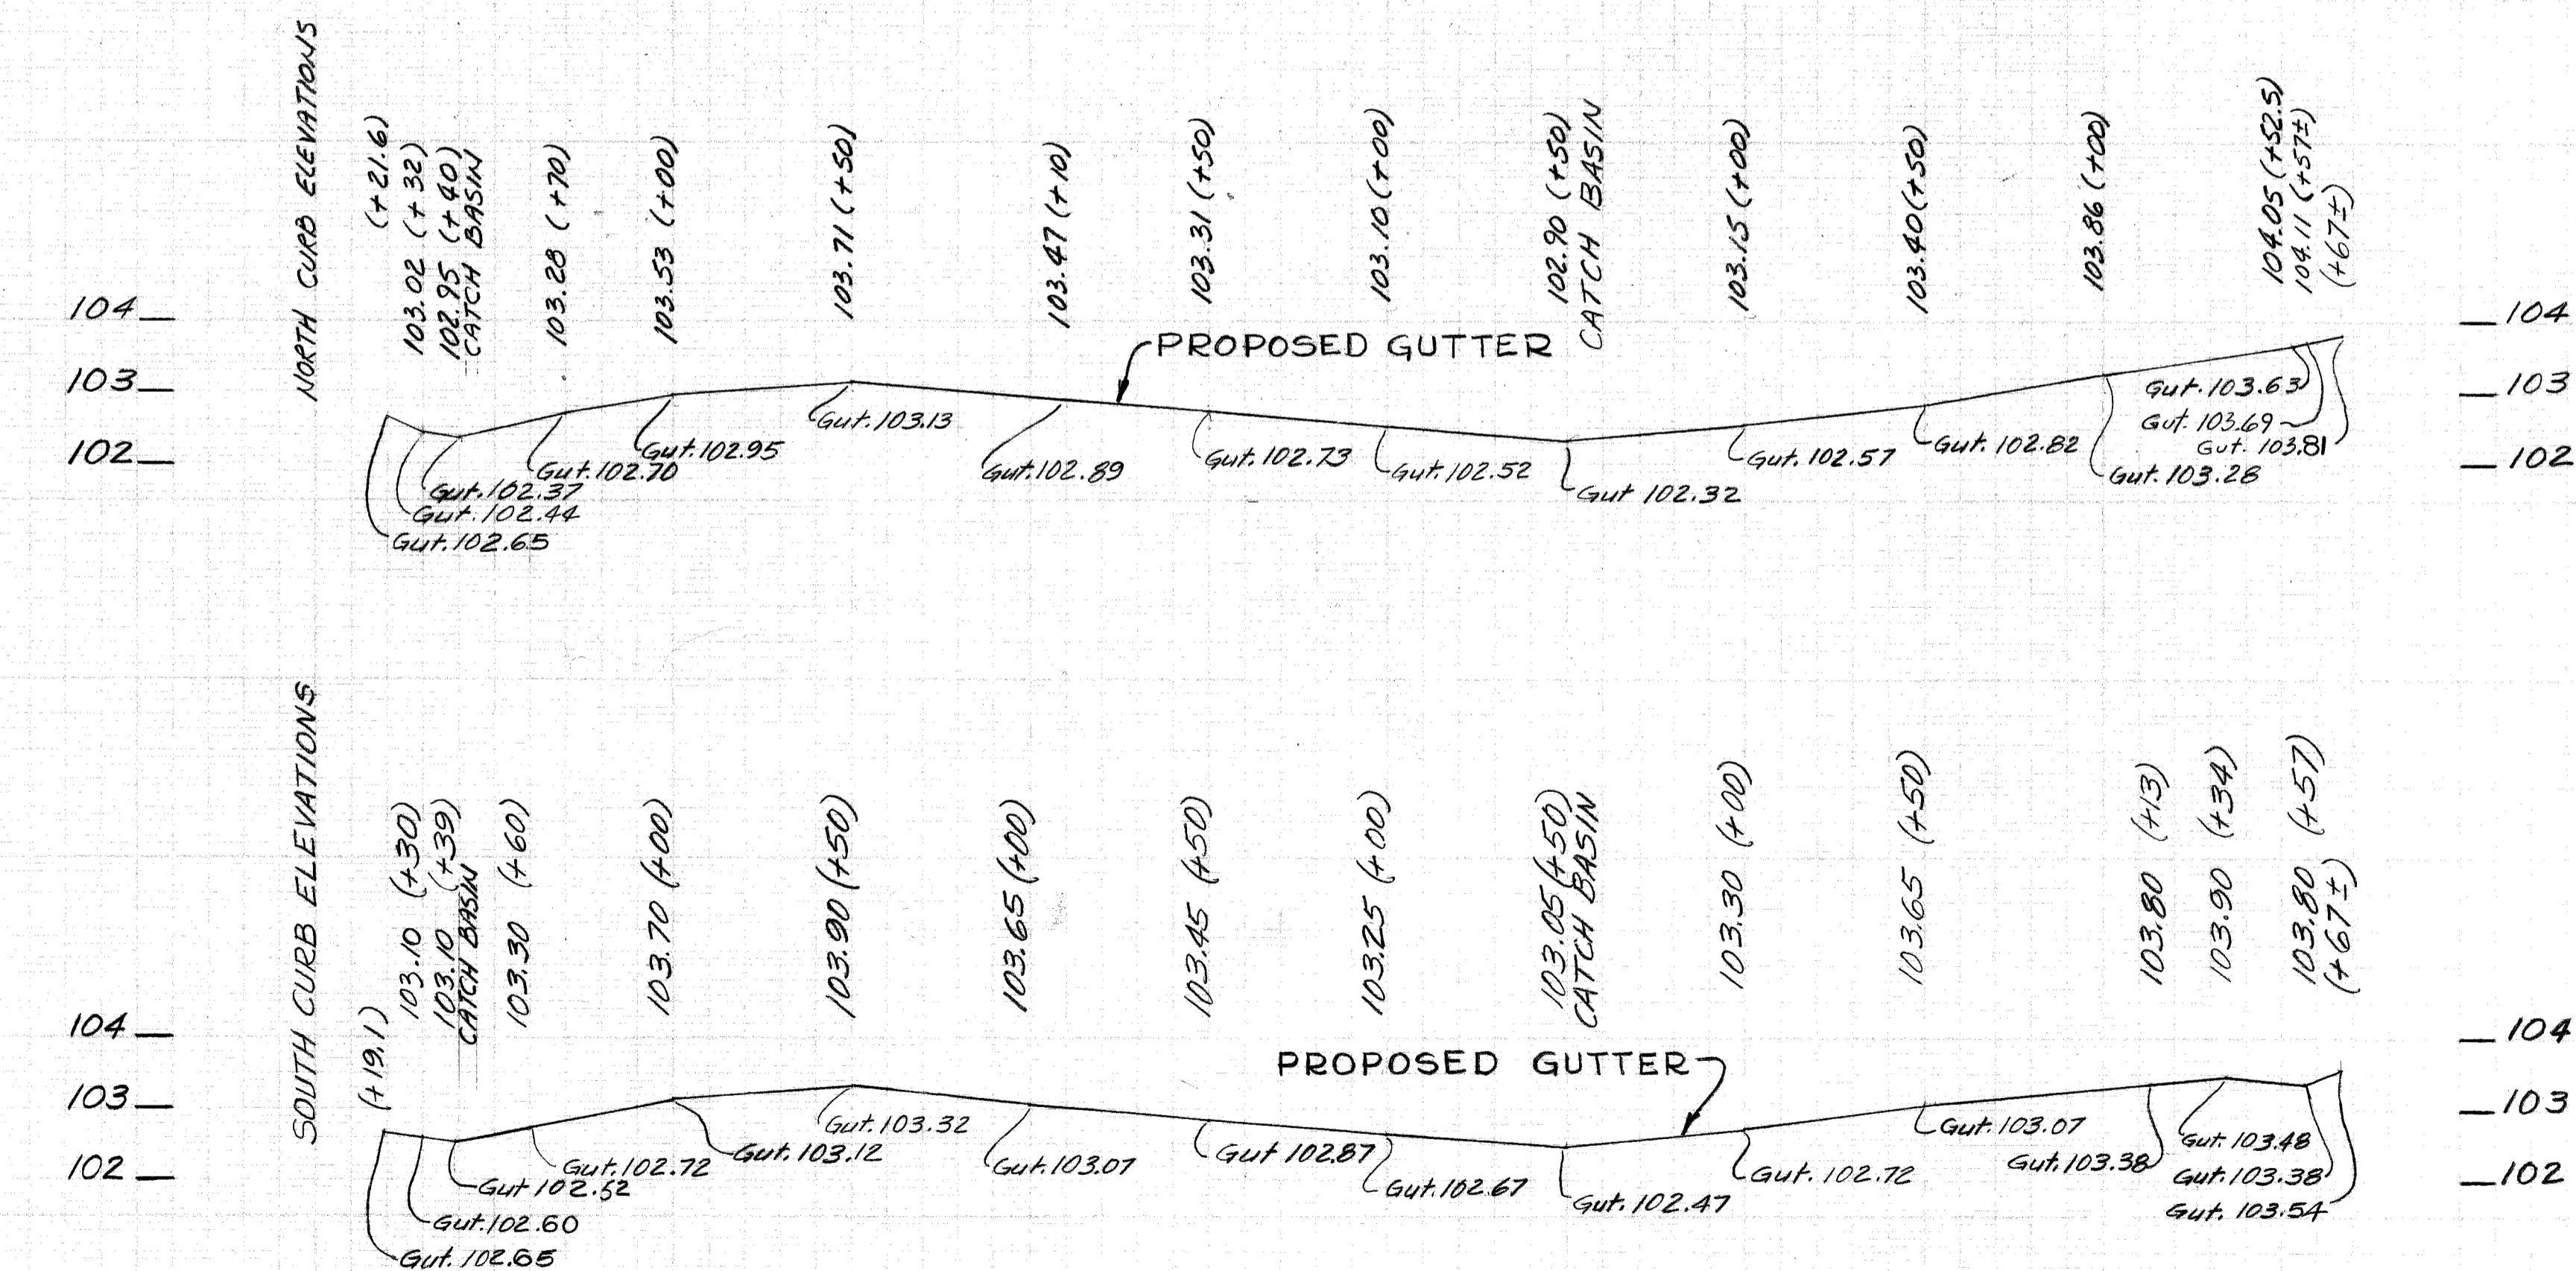 NORTH CURB ELEVATIONS
(+21.6)
103.02 (+32)
102.95 (+40)
CATCH BASIN
103.28 (+70)
103.53 (+00)
103.71 (+50)
103.47 (+10)
103.31 (+50)
103.10 (+00)
102.90 (+50)
CATCH BASIN
103.15 (+00)
103.40 (+50)
103.86 (+00)
104.05 (+52.5)
104.11 (+57±)
(+67±)
104
103
102
104
103
102
PROPOSED GUTTER
Gut. 102.65
Gut. 102.44
Gut. 102.37
Gut. 102.70
Gut. 102.95
Gut. 103.13
Gut. 102.89
Gut. 102.73
Gut. 102.52
Gut 102.32
Gut. 102.57
Gut. 102.82
Gut. 103.28
Gut. 103.63
Gut. 103.69
Gut. 103.81
SOUTH CURB ELEVATIONS
(+19.1)
103.10 (+30)
103.10 (+39)
CATCH BASIN
103.30 (+60)
103.70 (+00)
103.90 (+50)
103.65 (+00)
103.45 (+50)
103.25 (+00)
103.05 (+50)
CATCH BASIN
103.30 (+00)
103.65 (+50)
103.80 (+13)
103.90 (+34)
103.80 (+57)
(+67±)
104
103
102
104
103
102
PROPOSED GUTTER
Gut. 102.65
Gut. 102.60
Gut 102.52
Gut. 102.72
Gut. 103.12
Gut. 103.32
Gut. 103.07
Gut 102.87
Gut. 102.67
Gut. 102.47
Gut. 102.72
Gut. 103.07
Gut. 103.38
Gut. 103.48
Gut. 103.38
Gut. 103.54